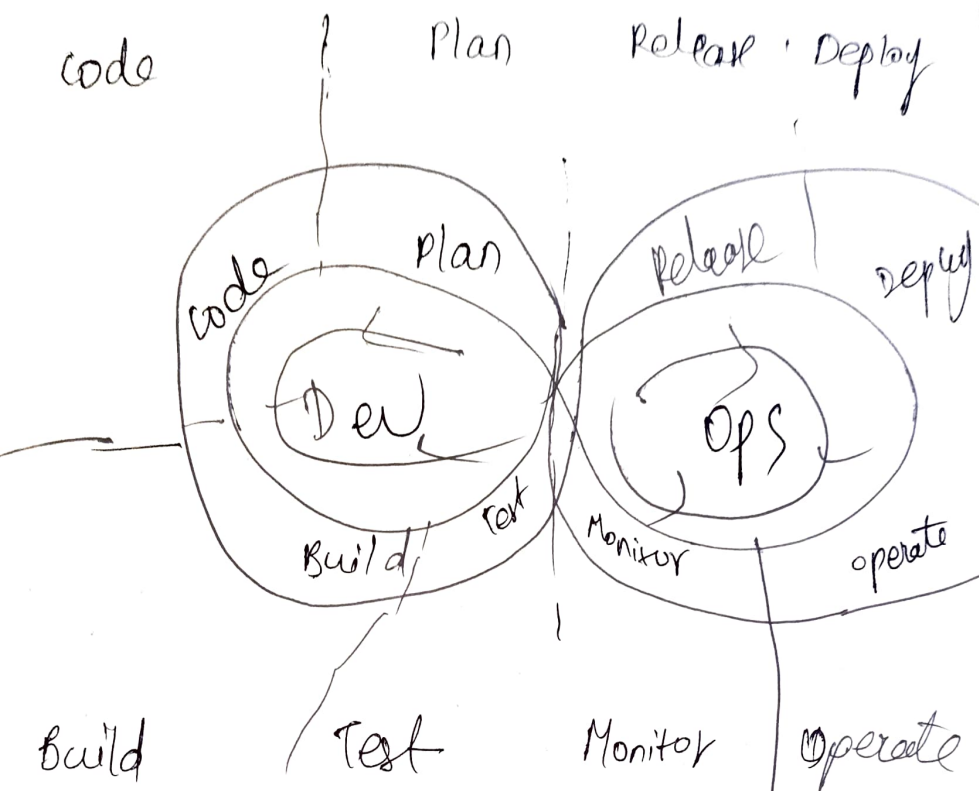 Code Plan Release . Deploy
Code Plan Release Deploy
Dev Ops
Build Test Monitor operate
Build Test Monitor Operate